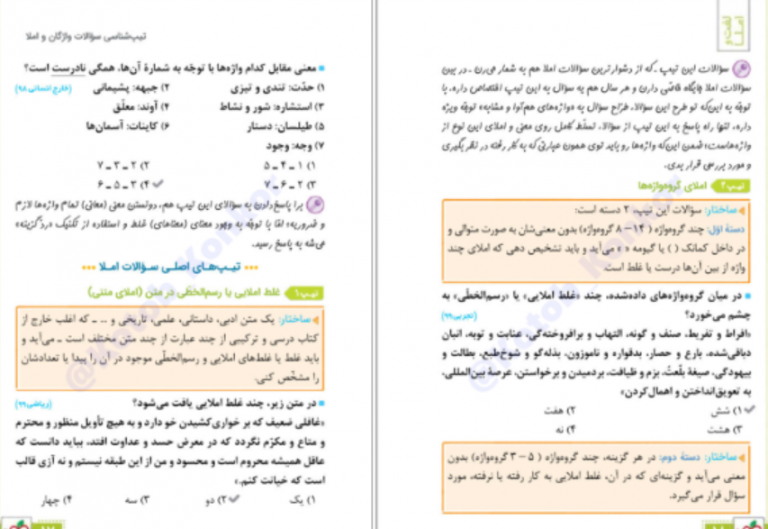 لغت و
املا
سؤالات این تیپ ـ که از دشوارترین سؤالات املا هم به شمار می‌رن ـ در بین
سؤالات املا جایگاه خاصّی دارن و هر سال هم یه سؤال به این تیپ اختصاص داره. با
توجّه به این‌که تو طرح این سؤالا، طرّاح سؤال به «واژه‌های هم‌آوا و مشابه» توجّه ویژه
داره، تنها راه پاسخ به این تیپ از سؤالا، تسلّط کامل روی معنی و املای این نوع از
واژه‌هاست؛ ضمن این‌که واژه‌ها رو باید توی همون عبارتی که به کار رفته در نظر بگیری
و مورد بررسی قرار بدی.
تیپ ۲ املای گروه‌واژه‌ها
ساختار: سؤالات این تیپ، ۲ دسته است:
دستهٔ اوّل: چند گروه‌واژه (۱۴ – ۸ گروه‌واژه) بدون معنی‌شان به صورت متوالی و
در داخل کمانک ( ) یا گیومه « » می‌آید و باید تشخیص دهی که املای چند
واژه از بین آن‌ها درست یا غلط است.
در میان گروه‌واژه‌های داده‌شده، چند «غلط املایی» یا «رسم‌الخطّی» به
چشم می‌خورد؟ (تجربی ۹۹)
«افراط و تفریط، صنف و گونه، التهاب و برافروخته‌گی، عنایت و توبه، انبان
دباغی‌شده، بارع و حصار، بدقواره و ناموزون، بذله‌گو و شوخ‌طبع، بطالت و
بیهودگی، صیغهٔ بلّعتُ، بزم و ظیافت، بردمیدن و برخواستن، عرصهٔ بین‌المللی،
به تعویق‌انداختن و اهمال‌کردن»
۱) شش ۲) هفت
۳) هشت ۴) نه
ساختار: دستهٔ دوم: در هر گزینه، چند گروه‌واژه (۵ – ۳ گروه‌واژه) بدون
معنی می‌آید و گزینه‌ای که در آن، غلط املایی به کار رفته یا نرفته، مورد
سؤال قرار می‌گیرد.
تیپ‌شناسی سؤالات واژگان و املا
معنی مقابل کدام واژه‌ها با توجّه به شمارهٔ آن‌ها، همگی نادرست است؟
۱) حدّت: تندی و تیزی ۲) جبهه: پشیمانی (خارج انسانی ۹۸)
۳) استشاره: شور و نشاط ۴) آوند: معلّق
۵) طیلسان: دستار ۶) کاینات: آسمان‌ها
۷) وجه: وجود
۱) ۱ ـ ۴ ـ ۵ ۲) ۲ ـ ۳ ـ ۷
۳) ۲ ـ ۶ ـ ۷ ۴) ۳ ـ ۵ ـ ۶
برا پاسخ‌دادن به سؤالای این تیپ هم، دونستن معنی (معانی) تمام واژه‌ها لازم
و ضروریه؛ امّا با توجّه به وجود معنای (معناهای) غلط و استفاده از تکنیک «ردّ گزینه»
می‌شه به پاسخ رسید.
تیپ‌های اصلی سؤالات املا
تیپ ۱ غلط املایی یا رسم‌الخطی در متن (املای متنی)
ساختار: یک متن ادبی، داستانی، علمی، تاریخی و ... ـ که اغلب خارج از
کتاب درسی و ترکیبی از چند عبارت از چند متن مختلف است ـ می‌آید و
باید غلط یا غلط‌های املایی و رسم‌الخطّی موجود در آن را پیدا یا تعدادشان
را مشخّص کنی.
در متن زیر، چند غلط املایی یافت می‌شود؟ (ریاضی ۹۹)
«غافلی ضعیف که بر خواری‌کشیدن خو دارد و به هیچ تأویل منظور و محترم
و متاع و مکرّم نگردد که در معرض حسد و عداوت افتد، بباید دانست که
عاقل همیشه محروم است و محسود و من از این طبقه نیستم و نه آزی قالب
است که خیانت کنم.»
۱) یک ۲) دو ۳) سه ۴) چهار